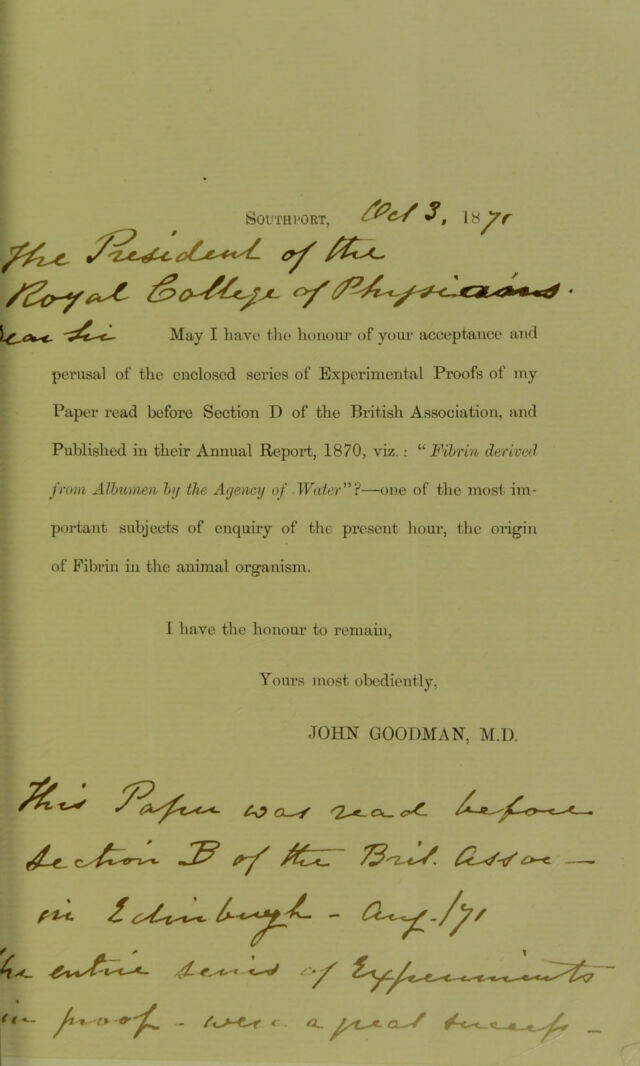 Southport, Oct 3, 1871
The President of the
Royal College of Physicians.
Dear Sir May I have the honour of your acceptance and
perusal of the enclosed series of Experimental Proofs of my
Paper read before Section D of the British Association, and
Published in their Annual Report, 1870, viz.: “Fibrin derived
from Albumen by the Agency of Water”?—one of the most im-
portant subjects of enquiry of the present hour, the origin
of Fibrin in the animal organism.
I have the honour to remain,
Yours most obediently,
JOHN GOODMAN, M.D.
This Paper was read before
Section B of the Brit. Assoc —
in Edinburgh - Aug./71
The entire series of Experiments
in proof - were a great success -